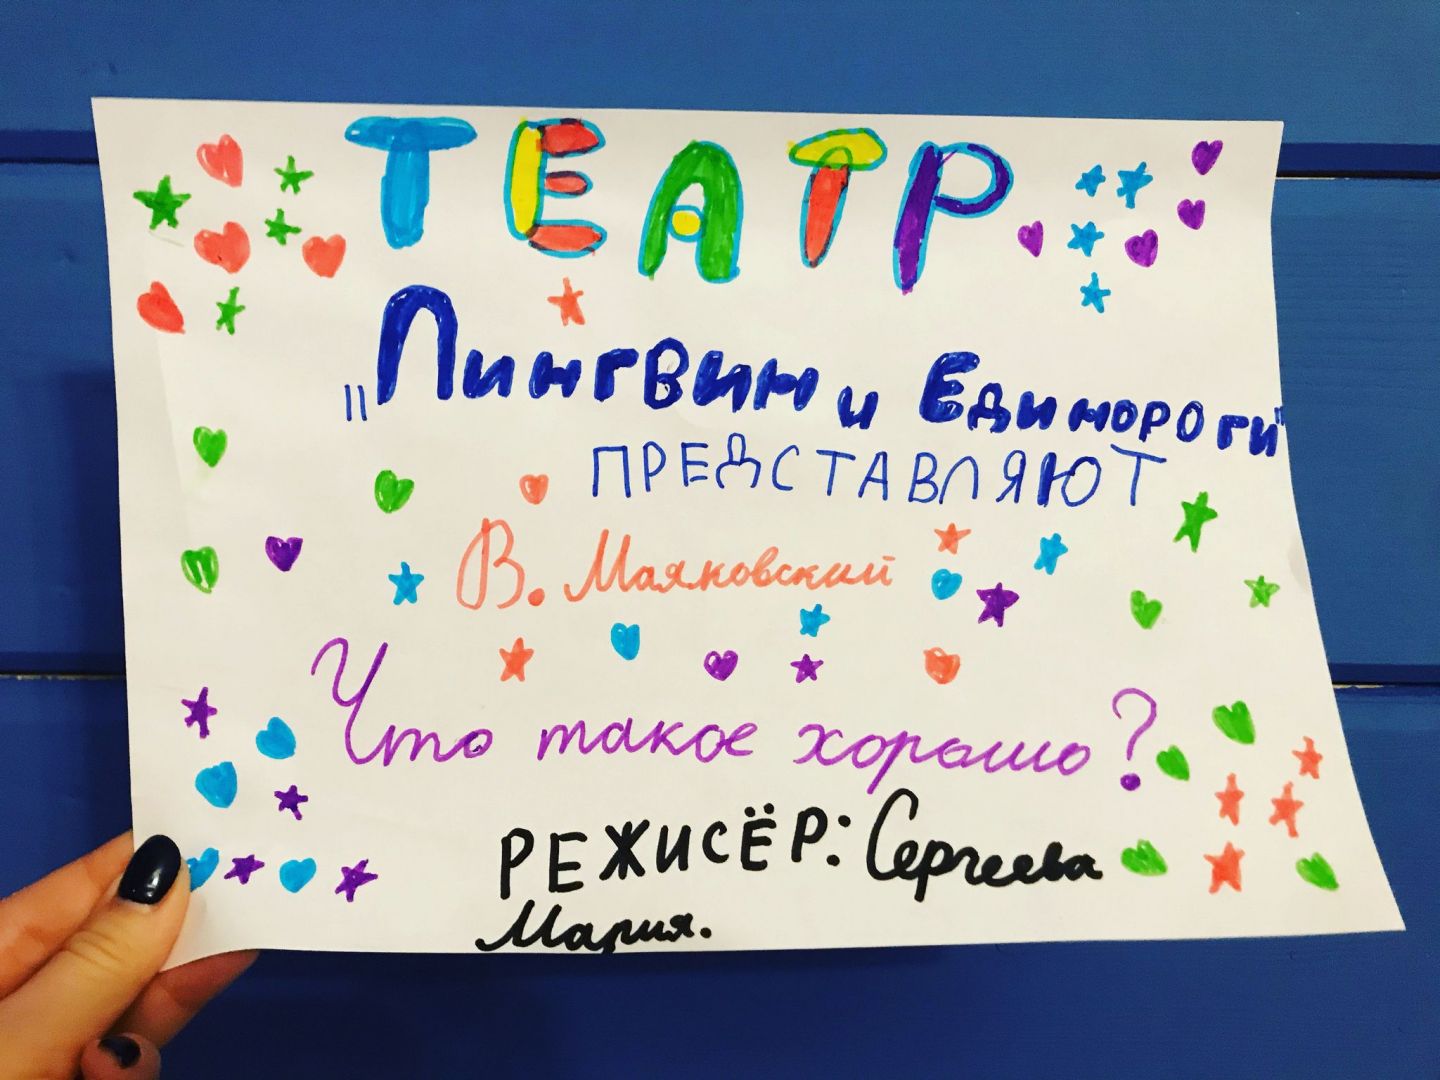 ТЕАТР
„Пингвин и Единороги"
ПРЕДСТАВЛЯЮТ
В. Маяковский
Что такое хорошо?
РЕЖИСЁР: Сергеева
Мария.